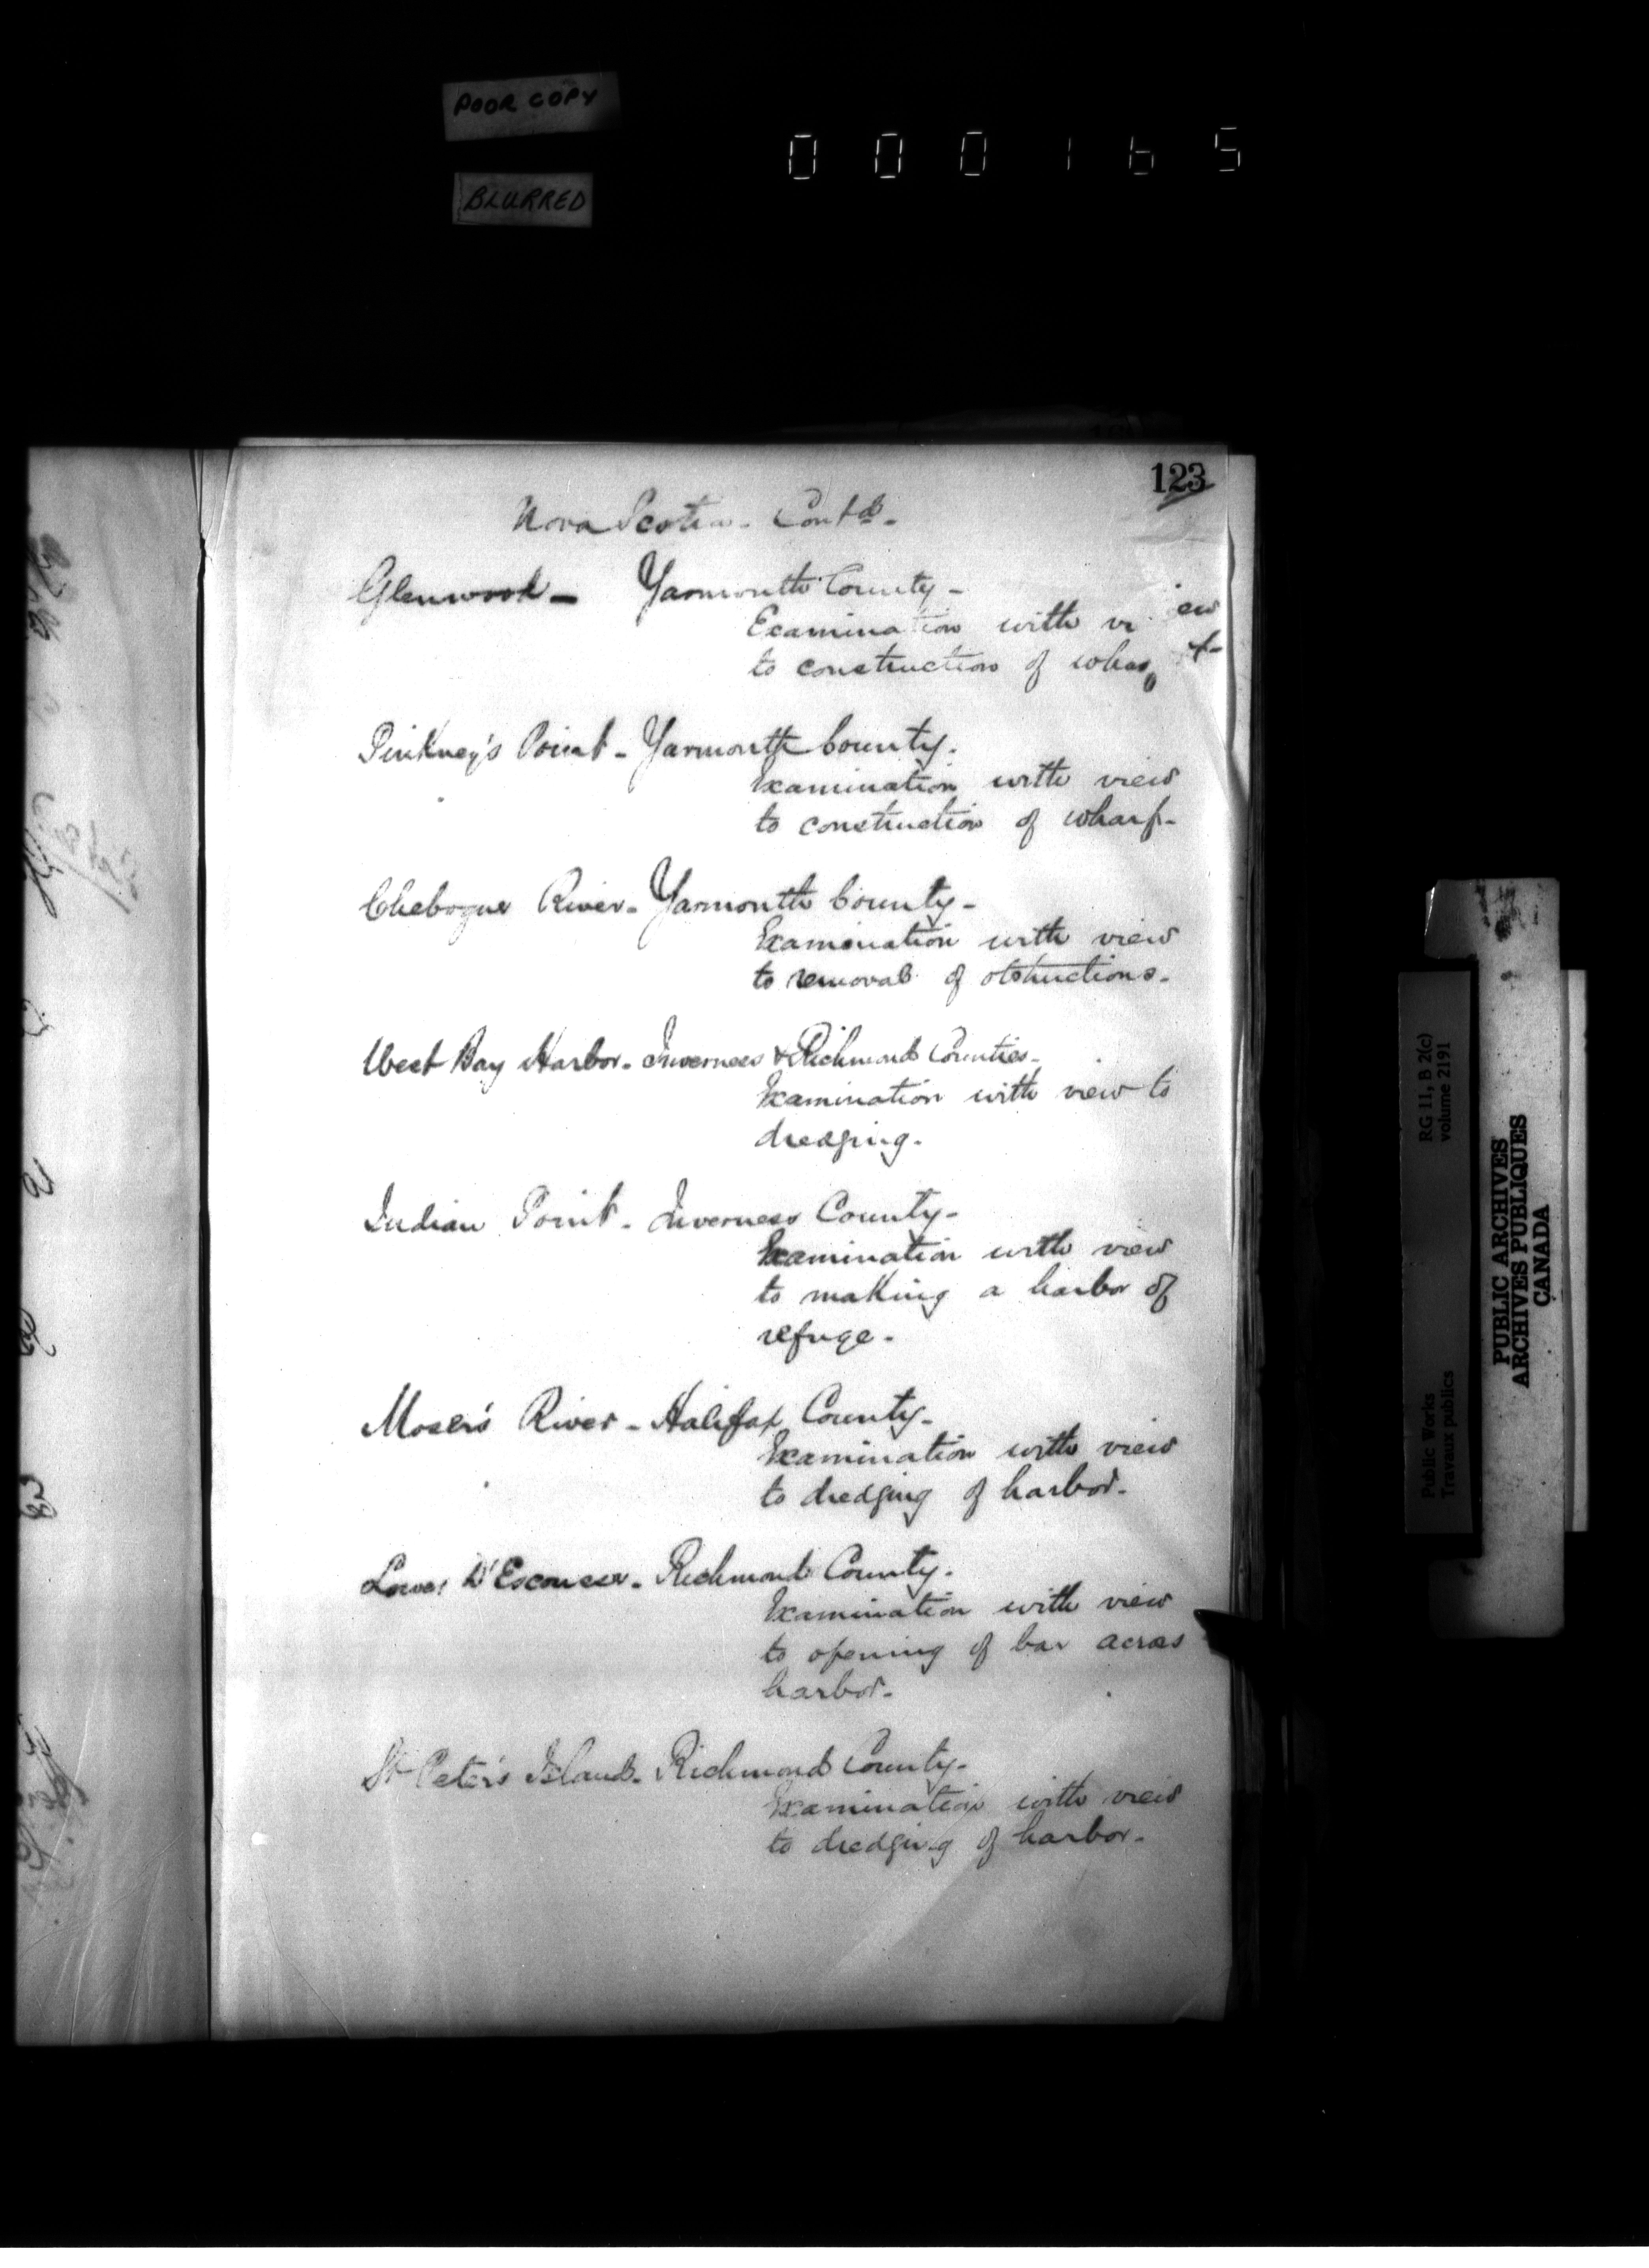 POOR COPY
BLURRED
000165
123
Nova Scotia - Contd -
Glenwood - Yarmouth County -
Examination with view
to construction of wharf -
Pinkney's Point - Yarmouth County -
Examination with view
to construction of wharf -
Chebogue River - Yarmouth County -
Examination with view
to removal of obstructions -
West Bay Harbor - Inverness & Richmond Counties -
Examination with view to
dredging -
Indian Point - Inverness County -
Examination with view
to making a harbor of
refuge -
Moser's River - Halifax County -
Examination with view
to dredging of harbor -
Lower D'Escousse - Richmond County -
Examination with view
to opening of bar across
harbor -
St Peter's Island - Richmond County -
Examination with view
to dredging of harbor -
RG 11, B 2(c)
volume 2191
Public Works
Travaux publics
PUBLIC ARCHIVES
ARCHIVES PUBLIQUES
CANADA